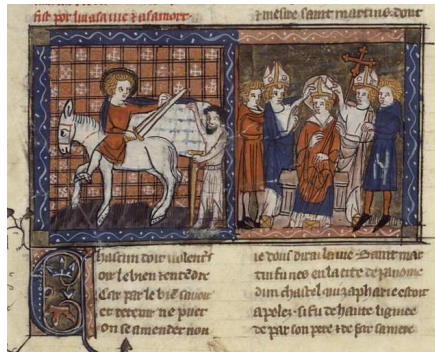 fist por lui sa uie et sa mort.
et mesire saint martins dont
hascun doit uolentiers
oir le bien et entēdre
Car par le biē sauoir
et retenir ne puet
on se amender non
ie uous dirai la uie. Saint mar
tin fu nes en la cite de
dun chastel qui
apelez. si fu de haute lignee
de par son pere et de par sa mere